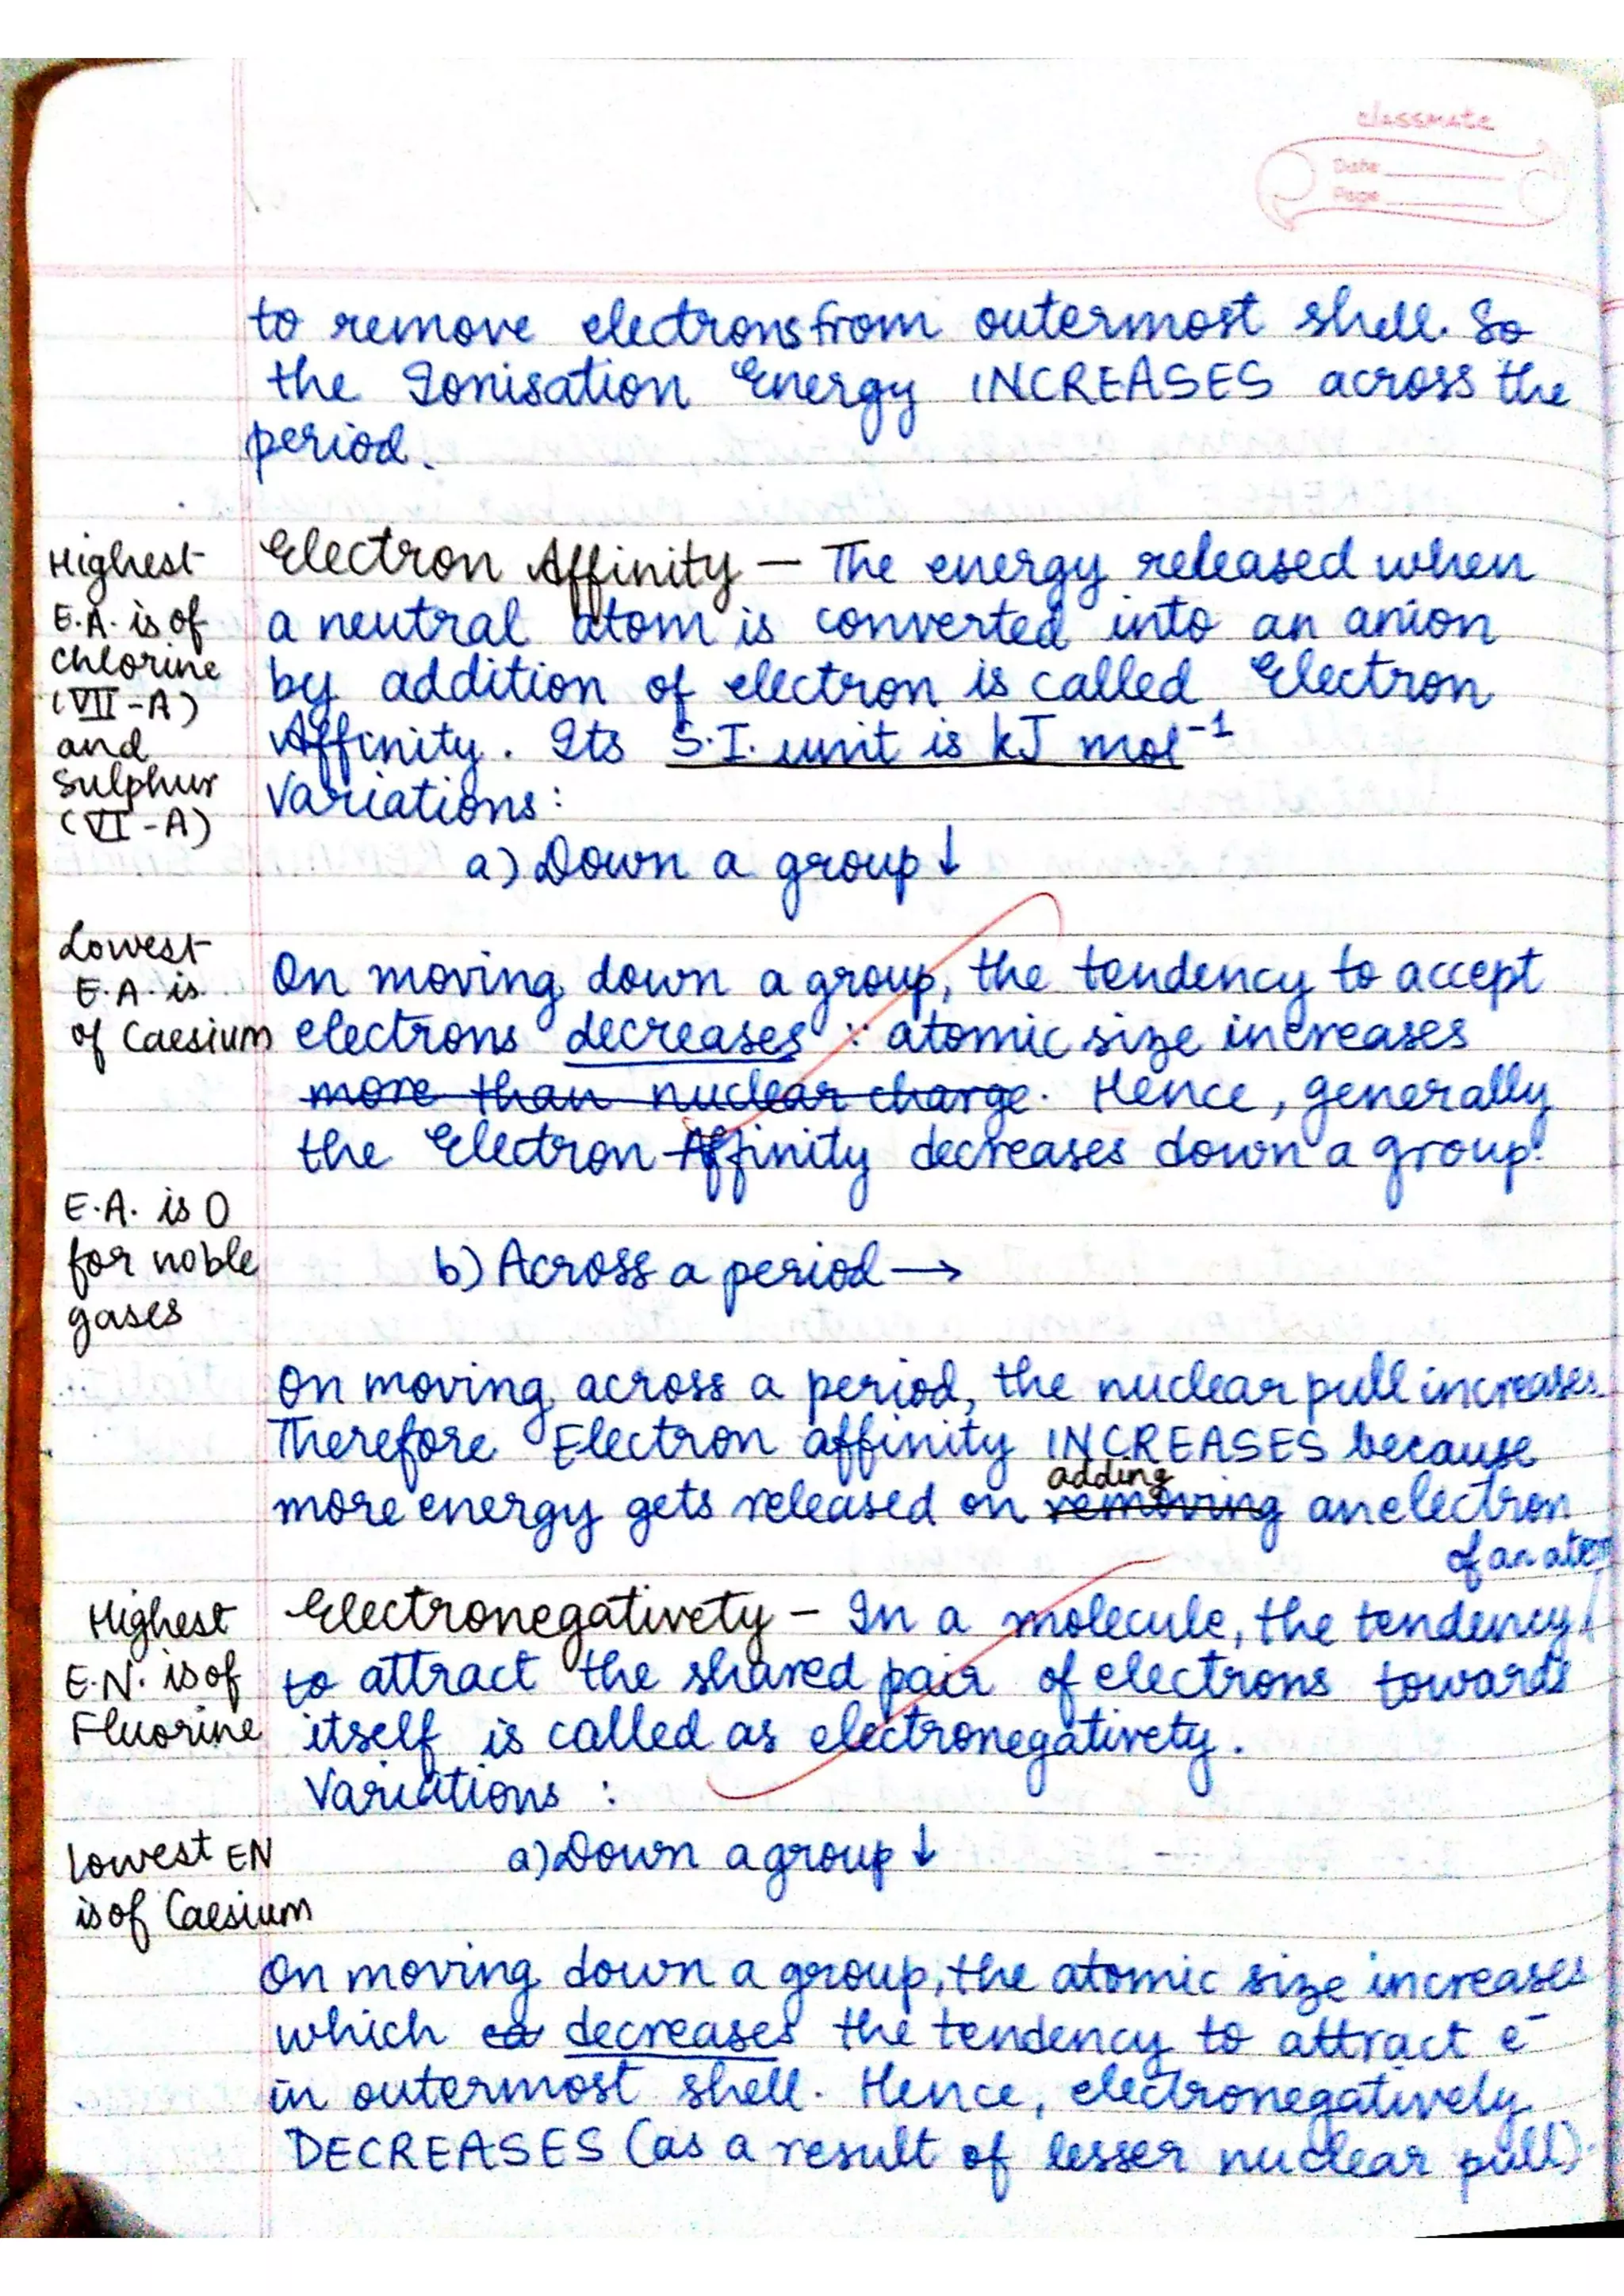 classmate
Date
Page
to remove electrons from outermost shell. So
the Ionisation Energy INCREASES across the
period.
Highest
E.A. is of
chlorine
(VII-A)
and
Sulphur
(VI-A)
Electron Affinity — The energy released when
a neutral atom is converted into an anion
by addition of electron is called Electron
Affinity. Its S.I. unit is kJ mol⁻¹
Variations:
a) Down a group ↓
Lowest
E.A. is
of Caesium
On moving down a group, the tendency to accept
electrons decreases ∵ atomic size increases
more than nuclear charge. Hence, generally
the Electron Affinity decreases down a group.
E.A. is 0
for noble
gases
b) Across a period →
On moving across a period, the nuclear pull increases
Therefore Electron affinity INCREASES because
adding
more energy gets released on removing an electron
of an atom
Highest
E.N. is of
Fluorine
Electronegativety – In a molecule, the tendency
to attract the shared pair of electrons towards
itself is called as electronegativety.
Variations :
Lowest EN
is of Caesium
a) Down a group ↓
On moving down a group, the atomic size increases
which decreases the tendency to attract e⁻
in outermost shell. Hence, electronegatively
DECREASES (as a result of lesser nuclear pull).